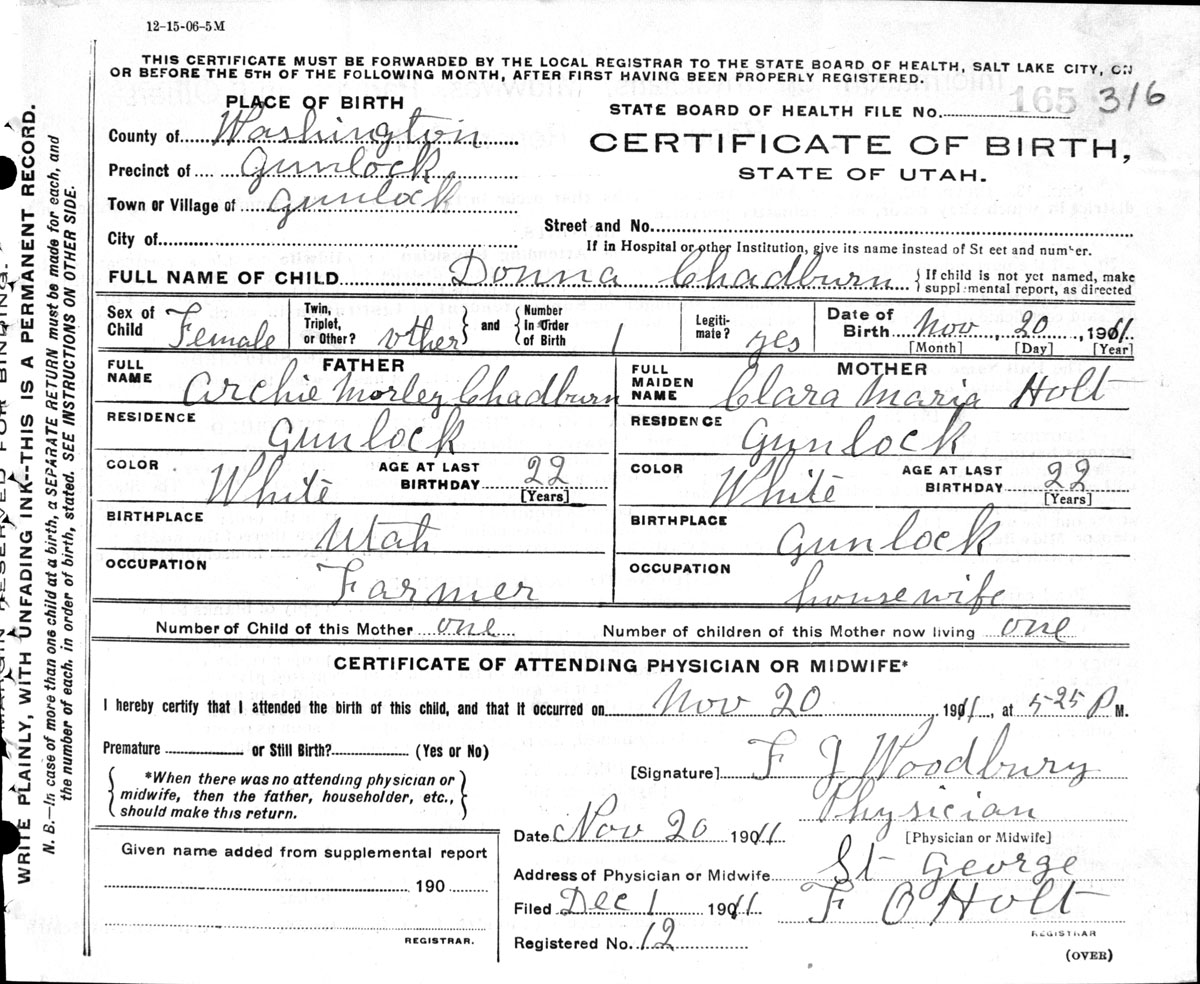 12-15-06-5M
THIS CERTIFICATE MUST BE FORWARDED BY THE LOCAL REGISTRAR TO THE STATE BOARD OF HEALTH, SALT LAKE CITY, ON
OR BEFORE THE 5TH OF THE FOLLOWING MONTH, AFTER FIRST HAVING BEEN PROPERLY REGISTERED.
PLACE OF BIRTH
STATE BOARD OF HEALTH FILE No. 165 316
County of Washington
CERTIFICATE OF BIRTH,
STATE OF UTAH.
Precinct of Gunlock
Town or Village of Gunlock
Street and No.
City of
If in Hospital or other Institution, give its name instead of St eet and number.
FULL NAME OF CHILD Donna Chadburn { If child is not yet named, make
supplemental report, as directed
Sex of Child Female
Twin, Triplet, or Other? other } and { Number In Order of Birth 1
Legitimate? yes
Date of Birth Nov 20, 1911
[Month] [Day] [Year]
FATHER
FULL NAME Archie Morley Chadburn
RESIDENCE Gunlock
COLOR White AGE AT LAST BIRTHDAY 22
[Years]
BIRTHPLACE Utah
OCCUPATION Farmer
MOTHER
FULL MAIDEN NAME Clara Maria Holt
RESIDENCE Gunlock
COLOR White AGE AT LAST BIRTHDAY 22
[Years]
BIRTHPLACE Gunlock
OCCUPATION housewife
Number of Child of this Mother one Number of children of this Mother now living one
CERTIFICATE OF ATTENDING PHYSICIAN OR MIDWIFE*
I hereby certify that I attended the birth of this child, and that it occurred on Nov 20, 1911, at 5-25 P M.
Premature or Still Birth? (Yes or No)
*When there was no attending physician or
midwife, then the father, householder, etc.,
should make this return.
[Signature] F J Woodbury
Physician
Date Nov 20 1911 [Physician or Midwife]
Address of Physician or Midwife St George
Filed Dec 1 1911 F O Holt
REGISTRAR
Registered No. 12
(OVER)
Given name added from supplemental report
190
REGISTRAR.
MARGIN RESERVED FOR BINDING.
WRITE PLAINLY, WITH UNFADING INK--THIS IS A PERMANENT RECORD.
N. B.—In case of more than one child at a birth, a SEPARATE RETURN must be made for each, and
the number of each, in order of birth, stated. SEE INSTRUCTIONS ON OTHER SIDE.